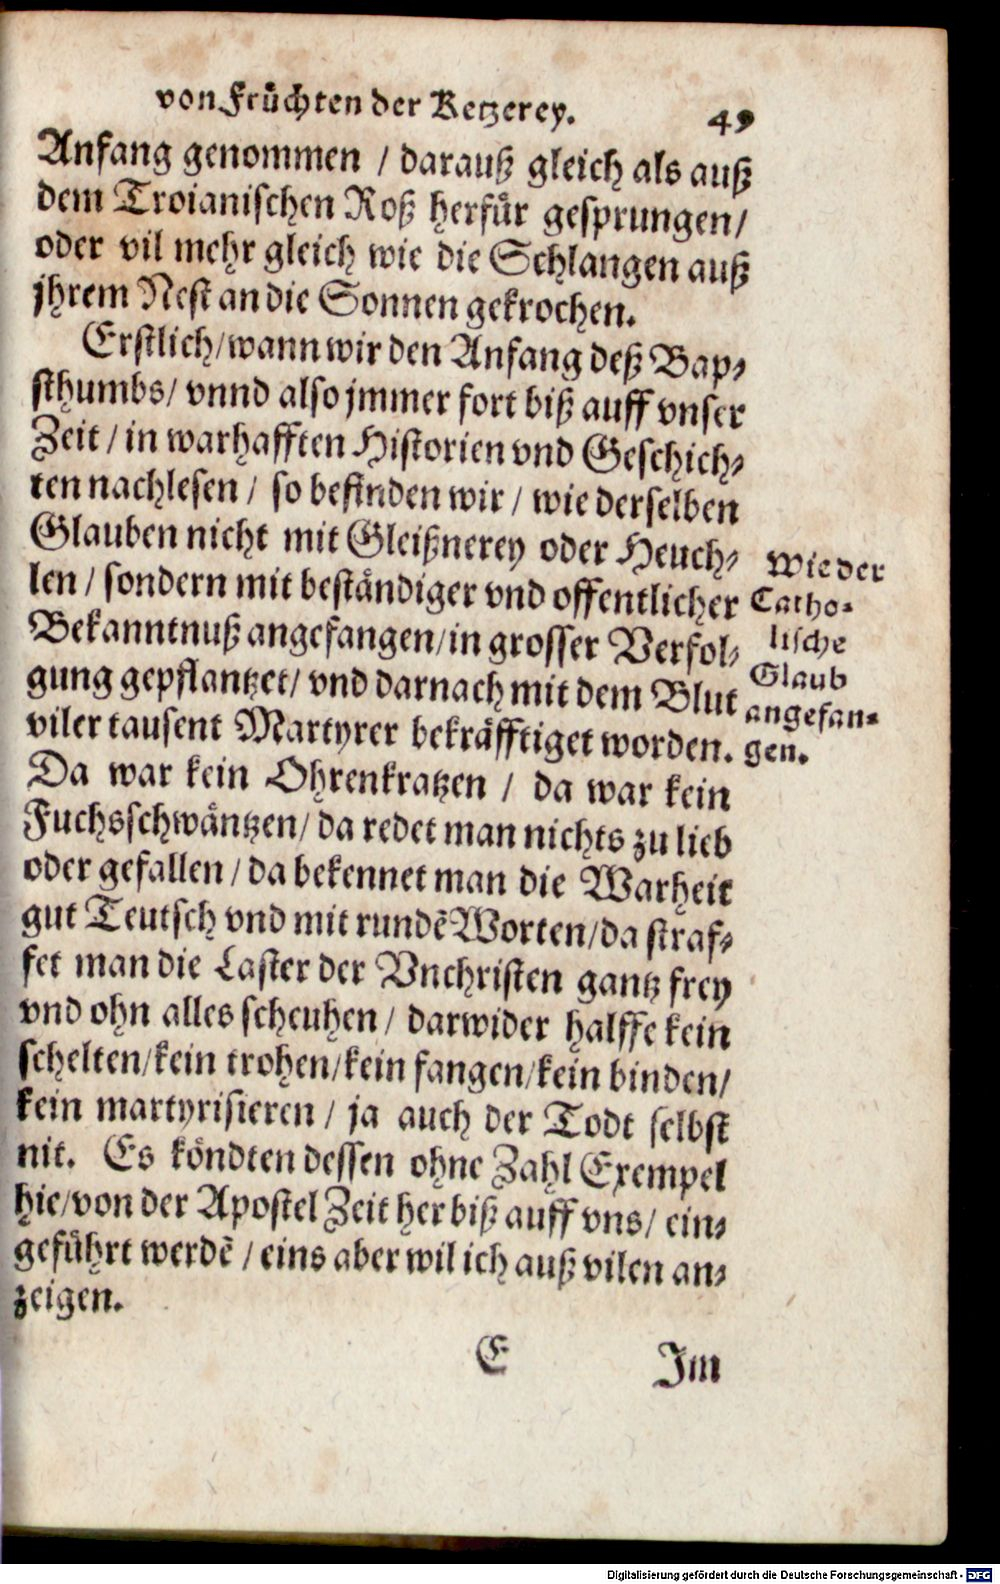 von Früchten der Ketzerey. 49
Anfang genommen / darauß gleich als auß
dem Troianischen Roß herfür gesprungen/
oder vil mehr gleich wie die Schlangen auß
jhrem Nest an die Sonnen gekrochen.
Erstlich/wann wir den Anfang deß Bap-
sthumbs/ vnnd also jmmer fort biß auff vnser
Zeit / in warhafften Historien vnd Geschich-
ten nachlesen / so befinden wir / wie derselben
Glauben nicht mit Gleißnerey oder Heuch-
len / sondern mit beständiger vnd offentlicher
Bekanntnuß angefangen/in grosser Verfol-
gung gepflantzet/ vnd darnach mit dem Blut
viler tausent Martyrer bekräfftiget worden.
Da war kein Ohrenkratzen / da war kein
Fuchsschwäntzen/ da redet man nichts zu lieb
oder gefallen / da bekennet man die Warheit
gut Teutsch vnd mit rundẽ Worten/da straf-
fet man die Laster der Vnchristen gantz frey
vnd ohn alles scheuhen / darwider halffe kein
schelten/kein trohen/kein fangen/kein binden/
kein martyrisieren / ja auch der Todt selbst
nit. Es köndten dessen ohne Zahl Exempel
hie/von der Apostel Zeit her biß auff vns/ ein-
geführt werdẽ / eins aber wil ich auß vilen an-
zeigen.
Wie der
Catho-
lische
Glaub
angefan-
gen.
E Im
Digitalisierung gefördert durch die Deutsche Forschungsgemeinschaft - DFG